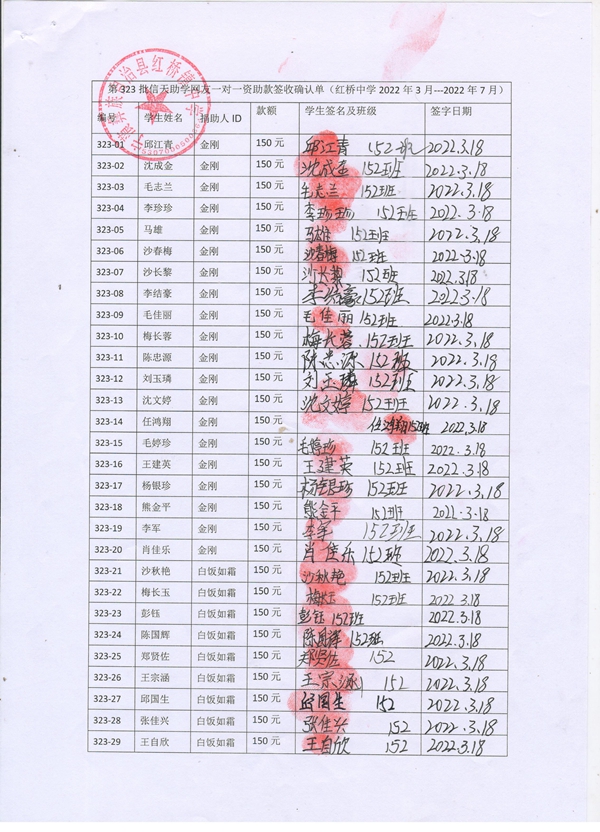 第 323 批信天助学网友一对一资助款签收确认单（红桥中学 2022 年 3 月---2022 年 7 月）
编号 学生姓名 捐助人 ID 款额 学生签名及班级 签字日期
323-01 邱江青 金刚 150 元 邱江青 152班 2022.3.18
323-02 沈成金 金刚 150 元 沈成金 152班 2022.3.18
323-03 毛志兰 金刚 150 元 毛志兰 152班 2022.3.18
323-04 李珍珍 金刚 150 元 李珍珍 152班 2022.3.18
323-05 马雄 金刚 150 元 马雄 152班 2022.3.18
323-06 沙春梅 金刚 150 元 沙春梅 152班 2022.3.18
323-07 沙长黎 金刚 150 元 沙长黎 152班 2022.3.18
323-08 李结豪 金刚 150 元 李结豪 152班 2022.3.18
323-09 毛佳丽 金刚 150 元 毛佳丽 152班 2022.3.18
323-10 梅长蓉 金刚 150 元 梅长蓉 152班 2022.3.18
323-11 陈忠源 金刚 150 元 陈忠源 152班 2022.3.18
323-12 刘玉璘 金刚 150 元 刘玉璘 152班 2022.3.18
323-13 沈文婷 金刚 150 元 沈文婷 152班 2022.3.18
323-14 任鸿翔 金刚 150 元 任鸿翔 152班 2022.3.18
323-15 毛婷珍 金刚 150 元 毛婷珍 152班 2022.3.18
323-16 王建英 金刚 150 元 王建英 152班 2022.3.18
323-17 杨银珍 金刚 150 元 杨银珍 152班 2022.3.18
323-18 熊金平 金刚 150 元 熊金平 152班 2022.3.18
323-19 李军 金刚 150 元 152班 2022.3.18
323-20 肖佳乐 金刚 150 元 肖佳乐 152班 2022.3.18
323-21 沙秋艳 白饭如霜 150 元 沙秋艳 152班 2022.3.18
323-22 梅长玉 白饭如霜 150 元 梅长玉 152班 2022.3.18
323-23 彭钰 白饭如霜 150 元 彭钰 152班 2022.3.18
323-24 陈国辉 白饭如霜 150 元 陈国辉 152班 2022.3.18
323-25 郑贤佐 白饭如霜 150 元 郑贤佐 152 2022.3.18
323-26 王宗涵 白饭如霜 150 元 王宗涵 152 2022.3.18
323-27 邱国生 白饭如霜 150 元 邱国生 152 2022.3.18
323-28 张佳兴 白饭如霜 150 元 张佳兴 152 2022.3.18
323-29 王自欣 白饭如霜 150 元 王自欣 152 2022.3.18